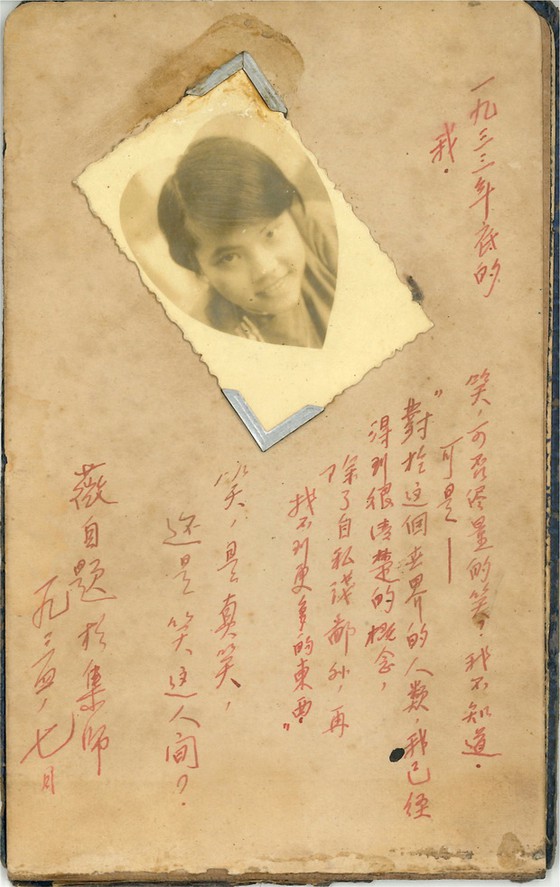 一九三三年底的
我.
笑,可否尽量的笑?我不知道.
可是——
"對於这個世界的人類,我已经
得到很清楚的概念,
除了自私諜鄙外,再
找不到更多的東西"
笑,是真笑,
还是笑这人间?.
薇自题於集师
一九三四,七月